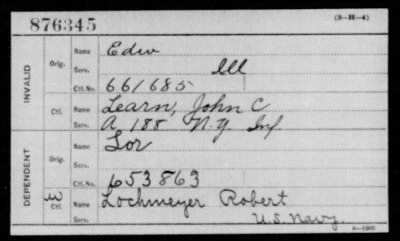 876345 (3-H-4)
INVALID
Orig. Name Edw
Serv. Ill
Ctf. No. 661685
Ctf. Name Learn, John C
Serv. A 188 N.Y. Inf.
DEPENDENT
Orig. Name Lor
Serv.
Ctf. No. 653863
W Ctf. Name Lochmeyer Robert
Serv. U.S. Navy.